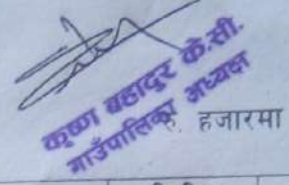 कृष्ण बहादुर के.सी.
गाउँपालिका अध्यक्ष
हजारमा